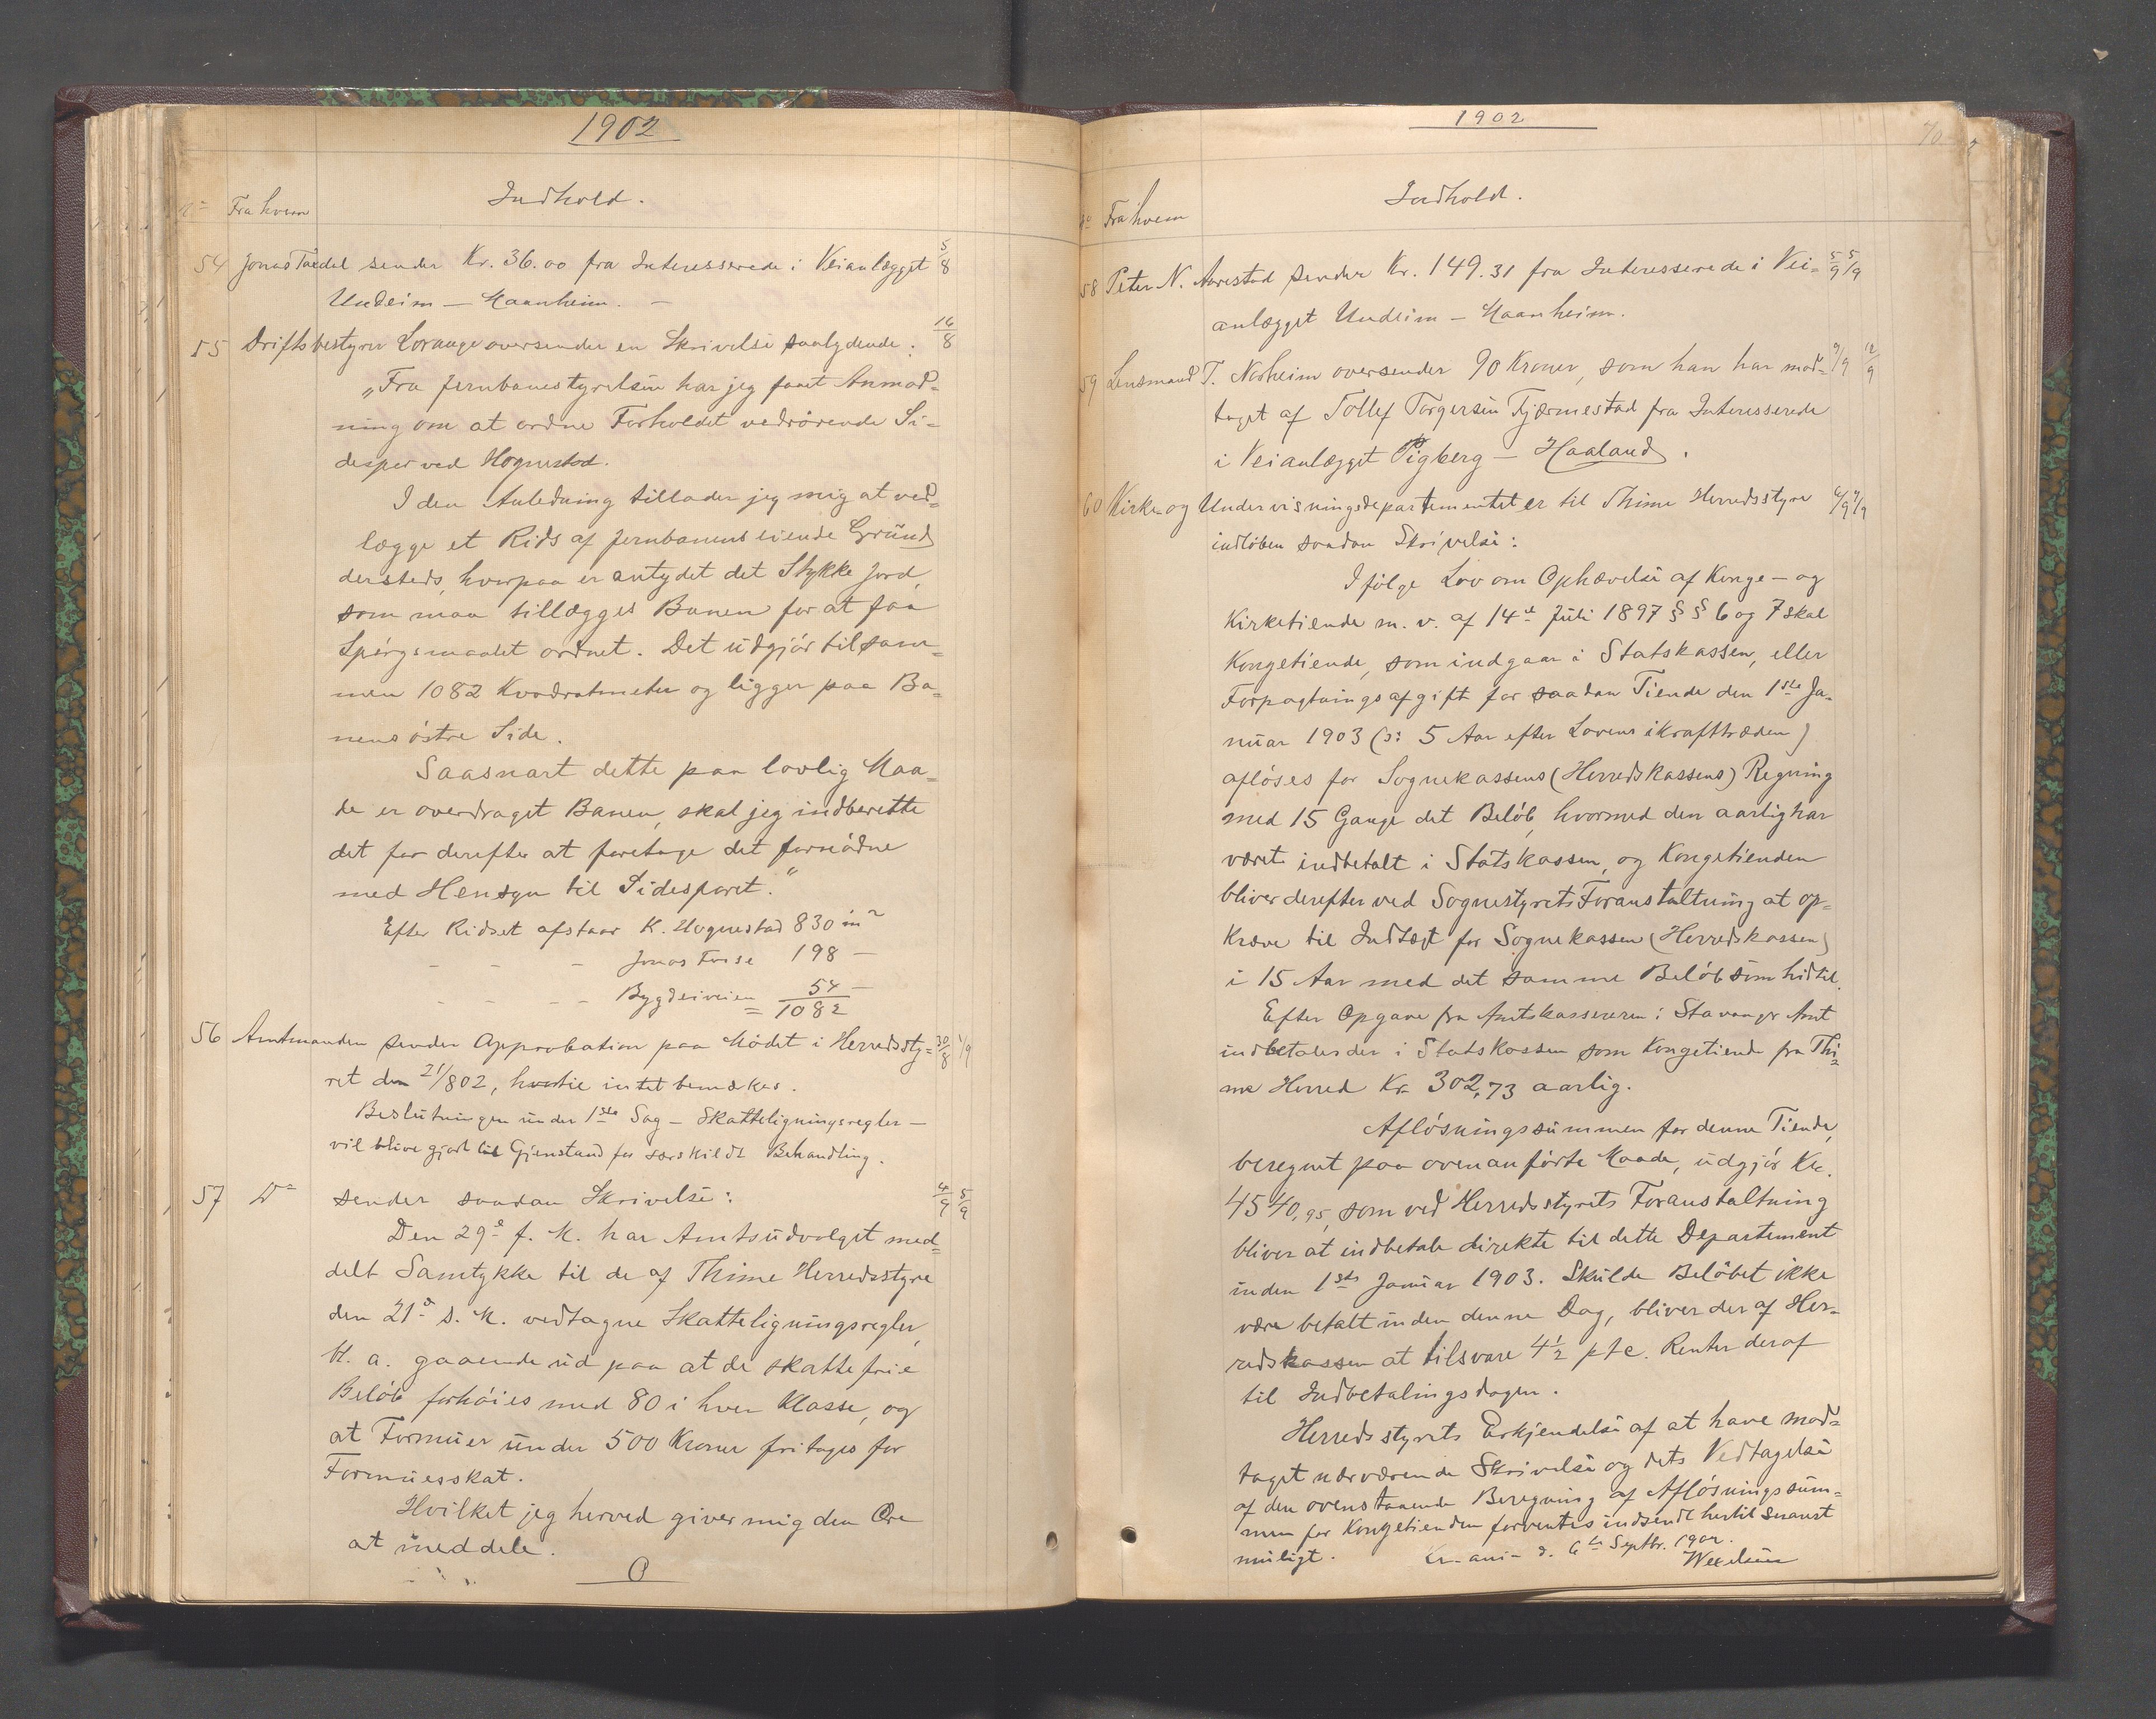 1902
No Fra hvem Indhold.
54 Jonas Taxdal sender Kr. 36.00 fra Interesserede i Veianlægget 5/8
Undeim — Maanheim. —
55 Driftsbestyrer Lorange oversender en Skrivelse saalydende: 16/8
„Fra Jernbanestyrelsen har jeg faaet Anmod=
ning om at ordne Forholdet vedrørende Si=
despor ved Hognestad.
I den Anledning tillader jeg mig at ved=
lægge et Rids af Jernbanens eiende Grund
dersteds, hvorpaa er antydet det Stykke Jord,
som maa tillægges Banen for at faa
Spørgsmaalet ordnet. Det udgjør tilsam=
men 1082 Kvadratmeter og ligger paa Ba=
nens østre Side.
Saasnart dette paa lovlig Maa=
de er overdraget Banen, skal jeg indberette
det for derefter at foretage det fornødne
med Hensyn til Sidesporet."
Efter Ridset afstaar K. Hognestad 830 m²
- - - Jonas Fosse 198 —
- - - - Bygdeiveien 54 —
= 1082
56 Amtmanden sender Approbation paa Mødet i Herredssty= 30/8 1/9
ret den 21/802, hvortil intet bemærkes.
Beslutningen under 1ste Sag — Skatteligningsregler —
vil blive gjort til Gjenstand for særskildt Behandling.
57 Do sender saadan Skrivelse: 4/9 5/9
Den 29de f. M. har Amtsudvalget med=
delt Samtykke til de af Thime Herredsstyre
den 21de s. M. vedtagne Skatteligningsregler,
bl. a. gaaende ud paa at de skattefrie
Beløb forhøies med 80 i hver Klasse, og
at Formuer under 500 Kroner fritages for
Formuesskat.
Hvilket jeg herved giver mig den Ære
at meddele.
1902
70
No Fra hvem Indhold.
58 Peter N. Aarestad sender Kr. 149.31 fra Interesserede i Vei= 5/9 5/9
anlægget Undeim — Maanheim.
59 Lensmand T. Norheim oversender 90 Kroner, som han har mod= 9/9 12/9
taget af Tollef Torgersen Tjærmestad fra Interesserede
i Veianlægget Pigberg — Haaland.
60 Kirke- og Undervisningsdepartementet er til Thime Herredsstyre 6/9 9/9
indløben saadan Skrivelse:
Ifølge Lov om Ophævelse af Konge- og
Kirketiende m. v. af 14de Juli 1897 § § 6 og 7 skal
Kongetiende, som indgaar i Statskassen, eller
Forpagtningsafgift for saadan Tiende den 1ste Ja=
nuar 1903 (ɔ: 5 Aar efter Lovens ikrafttræden)
afløses for Sognekassens (Herredskassens) Regning
med 15 Gange det Beløb, hvormed den aarlig har
været indbetalt i Statskassen, og Kongetienden
bliver derefter ved Sognestyrets Foranstaltning at op=
kræve til Indtægt for Sognekassen (Herredskassen)
i 15 Aar med det samme Beløb som hidtil.
Efter Opgave fra Amtskassereren i Stavanger Amt
indbetales der i Statskassen som Kongetiende fra Thi=
me Herred Kr. 302,73 aarlig.
Afløsningssummen for denne Tiende,
beregnet paa ovenanførte Maade, udgjør Kr.
4540,95, som ved Herredsstyrets Foranstaltning
bliver at indbetale direkte til dette Departement
inden 1ste Januar 1903. Skulde Beløbet ikke
være betalt inden denne Dag, bliver der af Her=
redskassen at tilsvare 4½ pct. Renter deraf
til Indbetalingsdagen.
Herredsstyrets Erkjendelse af at have mod=
taget nærværende Skrivelse og dets Vedtagelse
af den ovenstaaende Beregning af Afløsningssum=
men for Kongetienden forventes indsendt hertil snarest
muligt. Kr.ania d. 6te Septbr. 1902.
Wexelsen